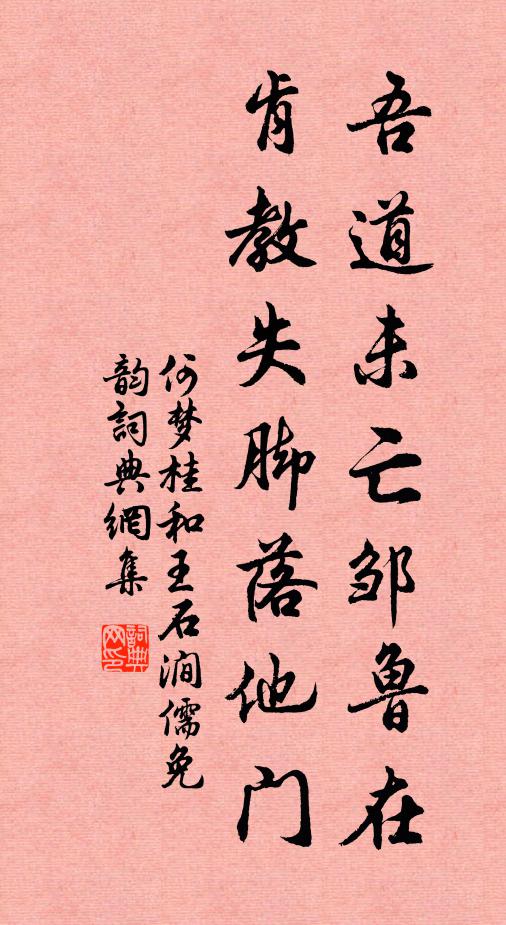 吾道未亡邹鲁在
肯教失脚落他门
何梦桂和王石涧儒免
韵詞典網集
詞典网印